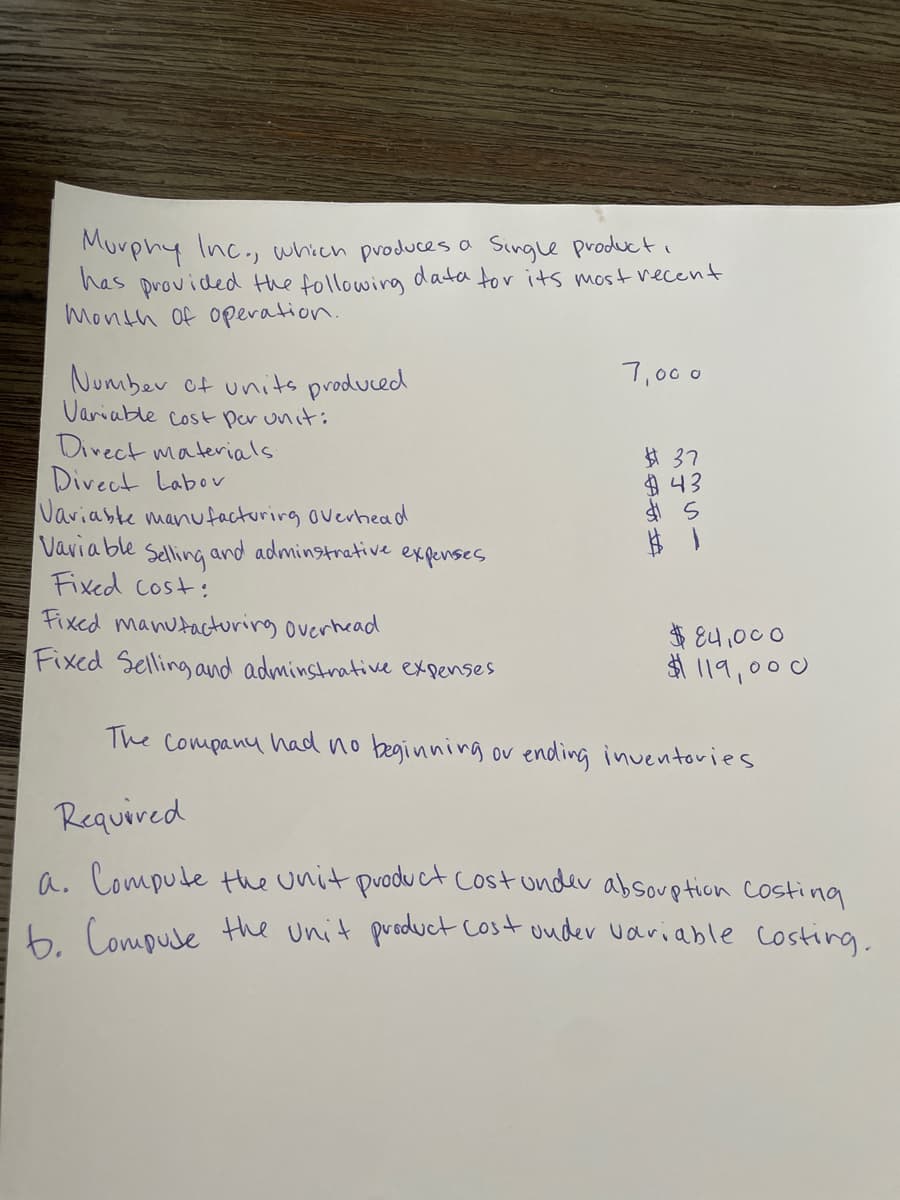 Murphy Inc., which produces a Single product,
has provided the following data for its most recent
Month of operation.
Number of units produced 7,000
Variable cost per unit:
Direct materials $ 37
Direct Labor $ 43
Variable manufacturing overhead $ 5
Variable Selling and adminstrative expenses $ 1
Fixed cost:
Fixed manufacturing overhead $ 84,000
Fixed Selling and adminstrative expenses $ 119,000
The company had no beginning or ending inventories
Required
a. Compute the unit product cost under absorption costing
b. Compute the unit product cost under variable costing.